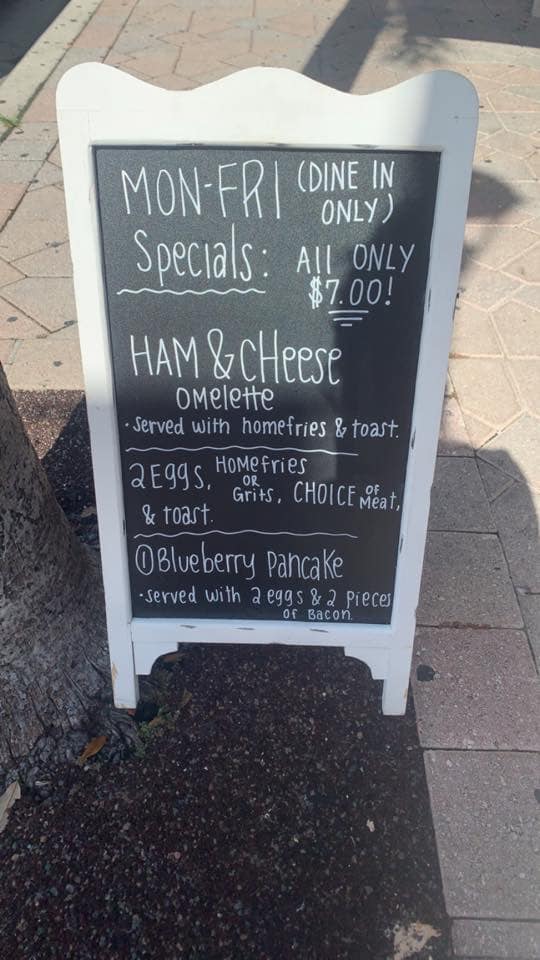 MON-FRI (DINE IN
ONLY)
Specials: All ONLY
$7.00!
HAM & CHeese
OMelette
·Served with homefries & toast.
2 Eggs, HOMefries
OR
Grits, CHOICE OF Meat,
& toast.
① Blueberry Pancake
·served with 2 eggs & 2 Pieces
OF Bacon.